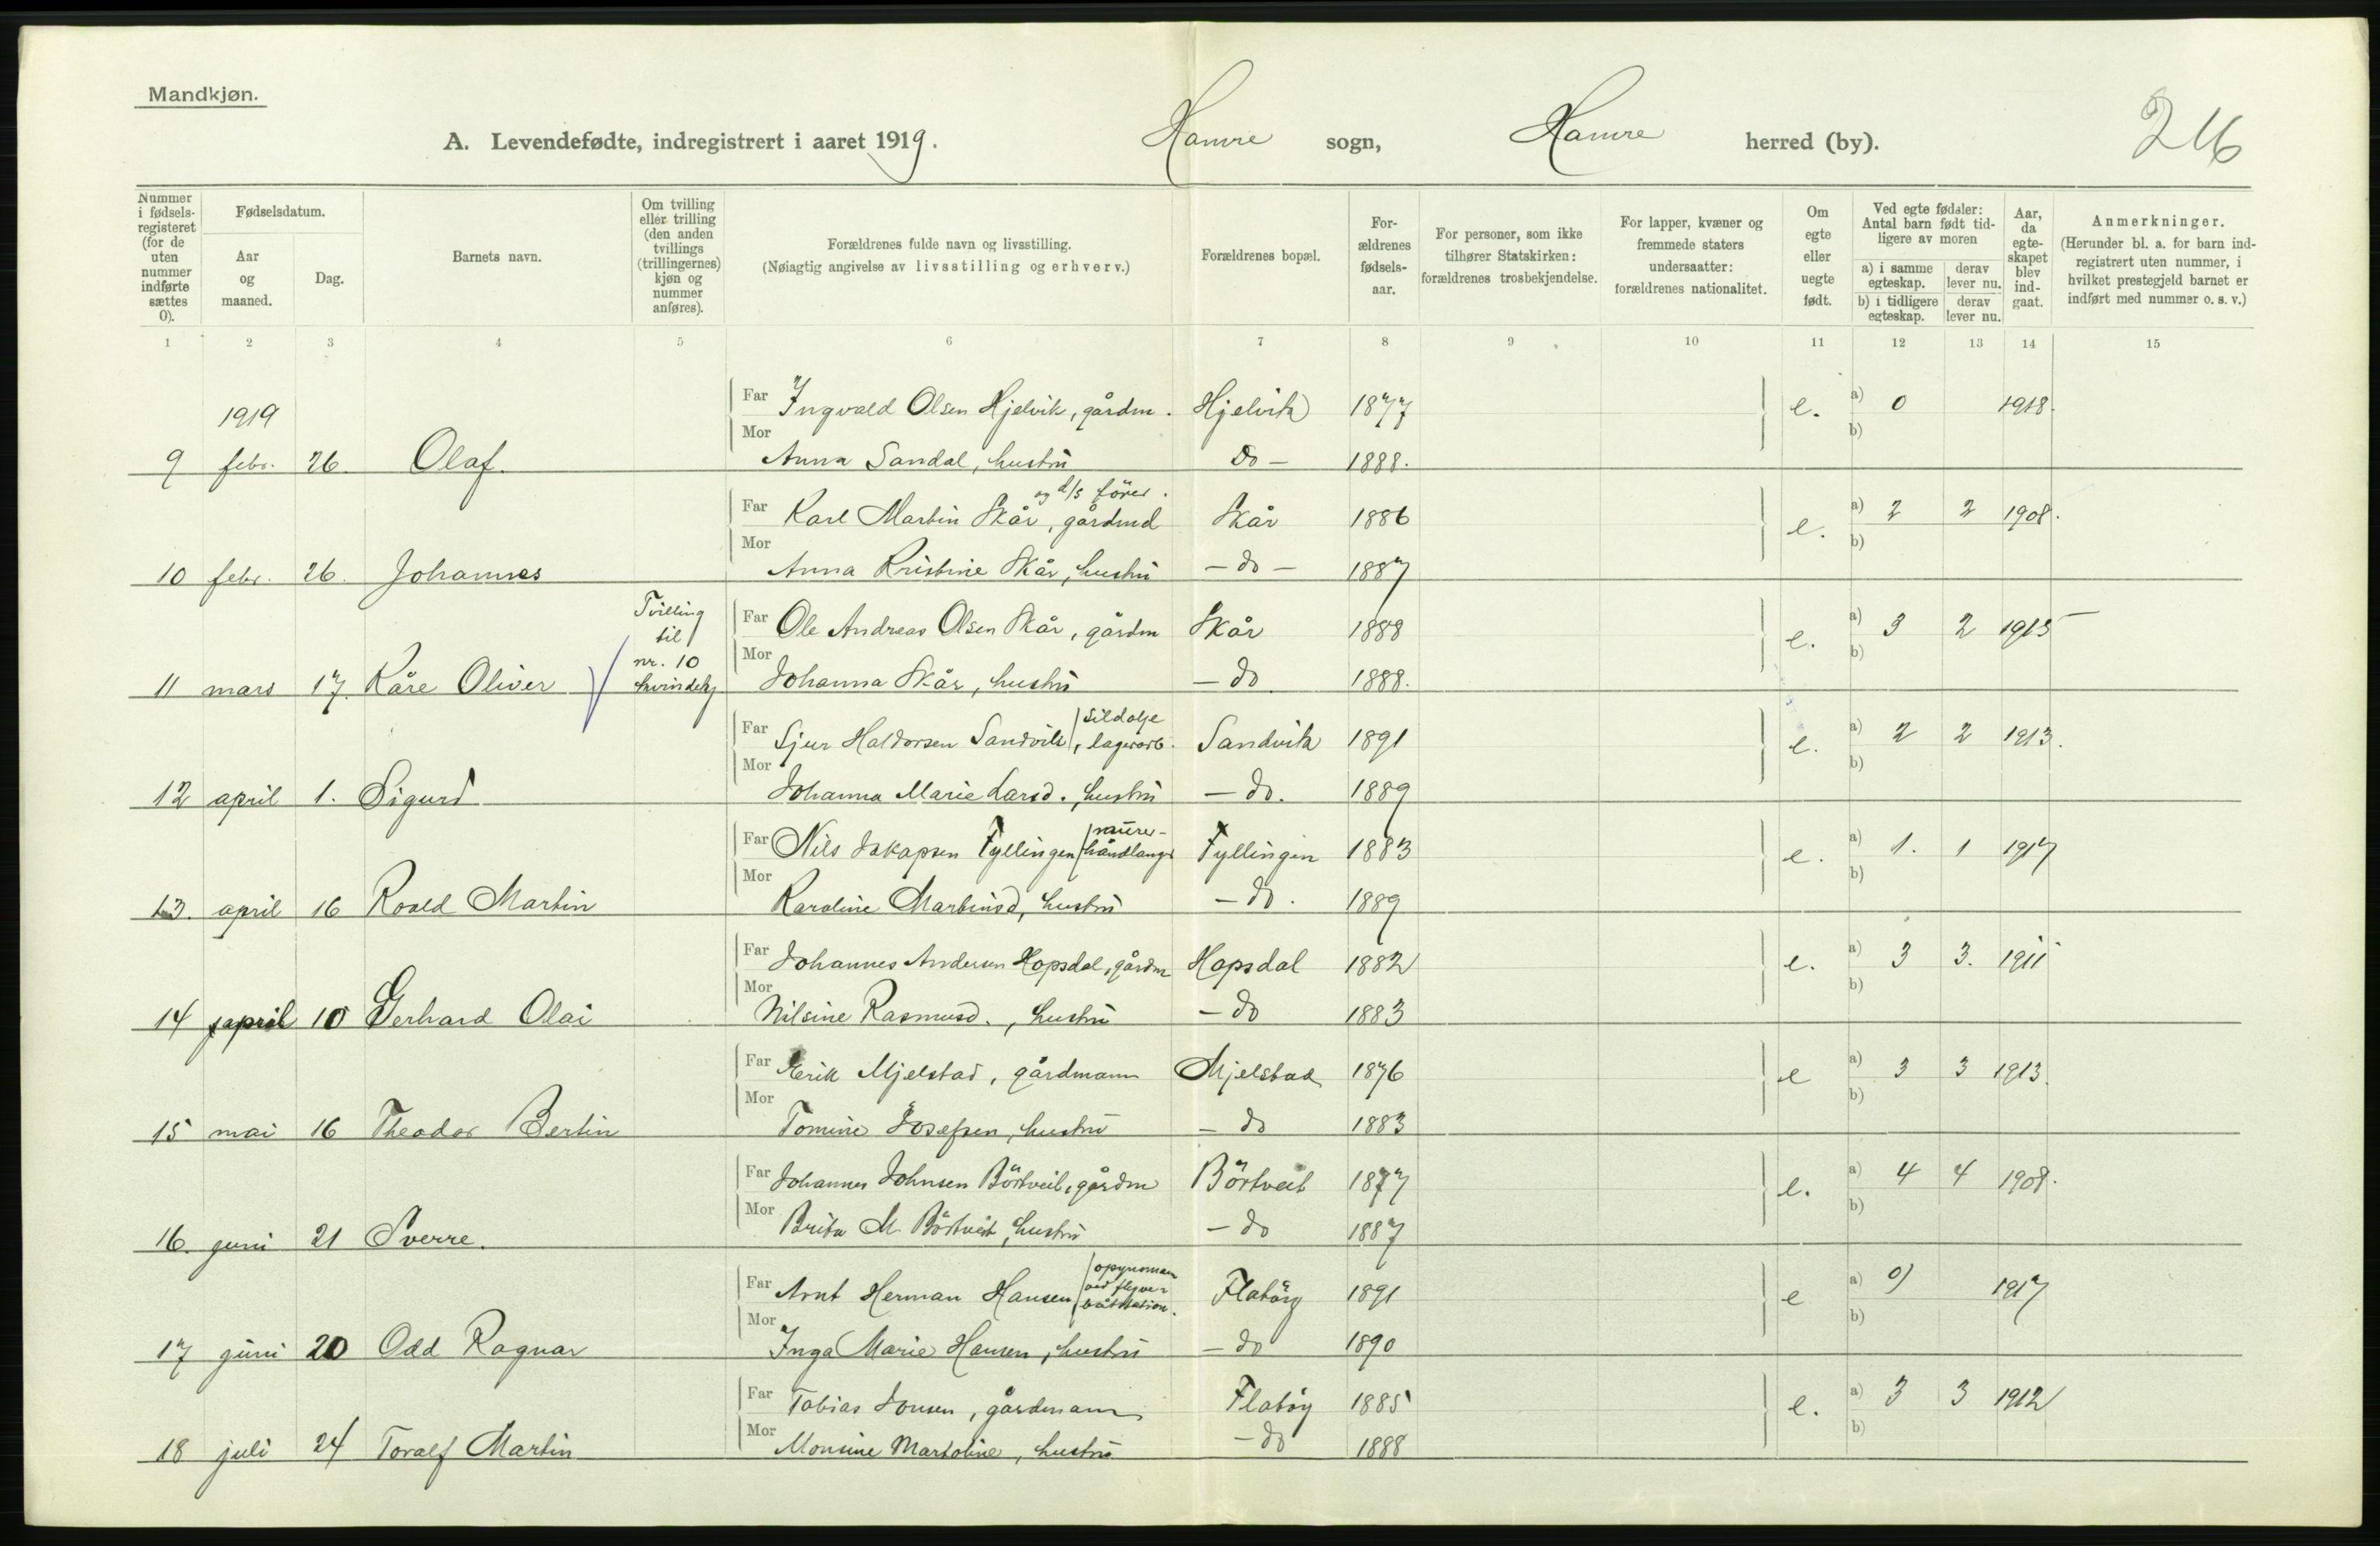 Mandkjøn.
A. Levendefødte, indregistrert i aaret 1919. Hamre sogn, Hamre herred (by). 26
Nummer i fødsels-registeret (for de uten nummer indførte sættes 0).
Fødselsdatum.
Aar og maaned.
Dag.
Barnets navn.
Om tvilling eller trilling (den anden tvillings (trillingernes) kjøn og nummer anføres).
Forældrenes fulde navn og livsstilling.
(Nøiagtig angivelse av livsstilling og erhverv.)
Forældrenes bopæl.
For-ældrenes fødsels-aar.
For personer, som ikke tilhører Statskirken: forældrenes trosbekjendelse.
For lapper, kvæner og fremmede staters undersaatter: forældrenes nationalitet.
Om egte eller uegte født.
Ved egte fødsler: Antal barn født tid-ligere av moren
a) i samme egteskap. derav lever nu.
b) i tidligere egteskap. derav lever nu.
Aar, da egte-skapet blev ind-gaat.
Anmerkninger.
(Herunder bl. a. for barn ind-registrert uten nummer, i hvilket prestegjeld barnet er indført med nummer o. s. v.)
1 2 3 4 5 6 7 8 9 10 11 12 13 14 15
1919
Far Ingvald Olsen Hjelvik, gårdm. Hjelvik 1877 e. a) 0 1918.
b)
9 febr. 26. Olaf. Mor Anna Sandal, hustru Do - 1888.
og d/s fören.
Far Karl Martin Skår, gårdmd Skår 1886 e. a) 2 2 1908.
b)
10 febr. 26. Johannes Mor Anna Kristine Skår, hustru - do - 1887
Tvilling
til
nr. 10
kvindekj
Far Ole Andreas Olsen Skår, gårdm Skår 1888 e. a) 3 2 1915
b)
11 mars 17. Kåre Oliver Mor Johanna Skår, hustru - do 1888.
sildolje
Far Sjur Haldorsen Sandvik, lagerarb. Sandvik 1891 e. a) 2 2 1913.
b)
12 april 1. Sigurd Mor Johanna Marie Larsd., hustru - do. 1889
murer-
Far Nils Jakapsen Fyllingen håndlanger Fyllingen 1883 e. a) 1. 1 1917
b)
13. april 16 Roald Martin Mor Karoline Martinsd, hustru - do. 1889
Far Johannes Andersen Hopsdal, gårdm Hopsdal 1882 e. a) 3 3. 1911
b)
14 april 10 Gerhard Olai Mor Nilsine Rasmusd., hustru - do 1883
Far Erik Mjelstad, gårdmann Mjelstad 1876 e a) 3 3 1913.
b)
15 mai 16 Theodor Bertin Mor Tomine Josefsen, hustru - do 1883
Far Johannes Johnsen Börtveit, gårdm Börtveit 1877 e. a) 4 4 1908.
b)
16. juni 21 Sverre. Mor Brita M. Börtveit, hustru - do 1887
opsynsman
ved flyver
båtstation.
Far Arnt Herman Hansen Flatöy 1891 e a) 0 1917
b)
17 juni 20 Odd Ragnar Mor Inga Marie Hansen, hustru - do 1890
Far Tobias Jonsen, gårdmann Flatöy 1885 e. a) 3 3 1912
b)
18 juli 24 Toralf Martin Mor Monsine Martoline, hustru - do 1888